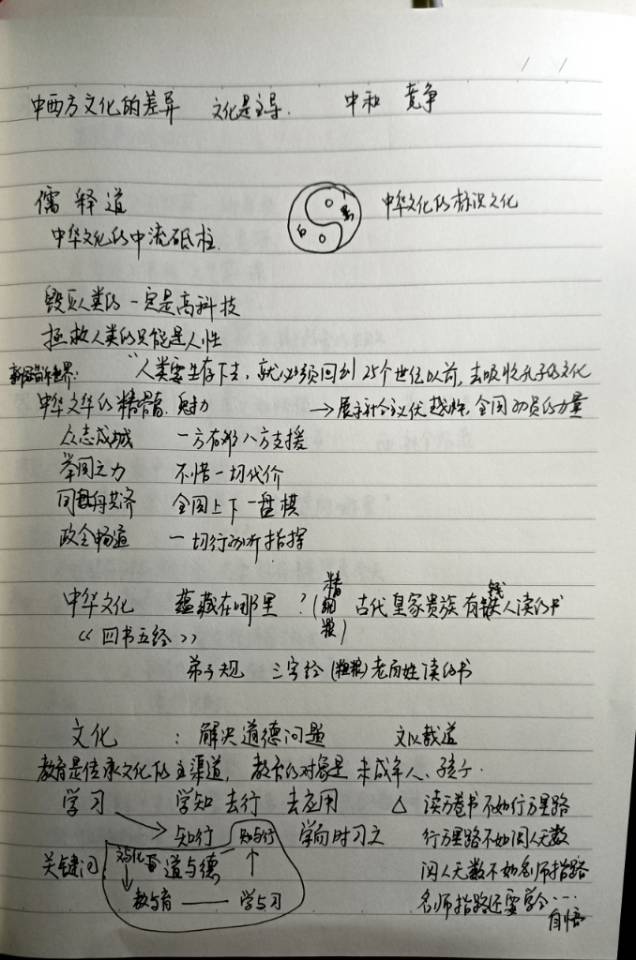 中西方文化的差异 文化是主导. 中和 竞争
儒 释 道
黑
白
中华文化的标识文化
中华文化的中流砥柱.
毁灭人类的一定是高科技
拯救人类的只能是人性
"人类要生存下去,就必须回到25个世纪以前,去吸收孔子的文化
中华文华的精髓. 魅力 →展示社会主义优越性,全国动员的力量
众志成城 一方有难八方支援
举国之力 不惜一切代价
同舟共济 全国上下一盘棋
政令畅通 一切行动听指挥
中华文化 蕴藏在哪里?(精细粮) 古代皇家贵族有钱人读的书
《四书五经》
弟子规 三字经(粗粮)老百姓读的书
文化 : 解决道德问题 文以载道
教育是传承文化的主渠道, 教育的对象是 未成年人、孩子.
学习 学知 去行 去应用 △ 读万卷书不如行万里路
→知行 知与行 学而时习之 行万里路不如阅人无数
关键词 文与化 道与德 阅人无数不如名师指路
教与育 —— 学与习 名师指路还要学会…
自悟